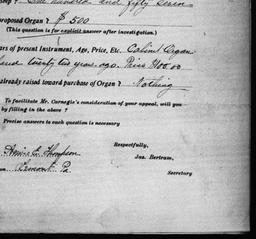 One hundred and fifty seven
proposed Organ? $500
(This question is for explicit answer after investigation.)
ars of present Instrument, Age, Price, Etc. Cabinet Organ
twenty two years ago. Price $100.00
already raised toward purchase of Organ? Nothing
To facilitate Mr. Carnegie's consideration of your appeal, will you
by filling in the above?
Precise answers to each question is necessary
Respectfully,
Jas. Bertram,
Secretary
Thompson
Fremont Pa